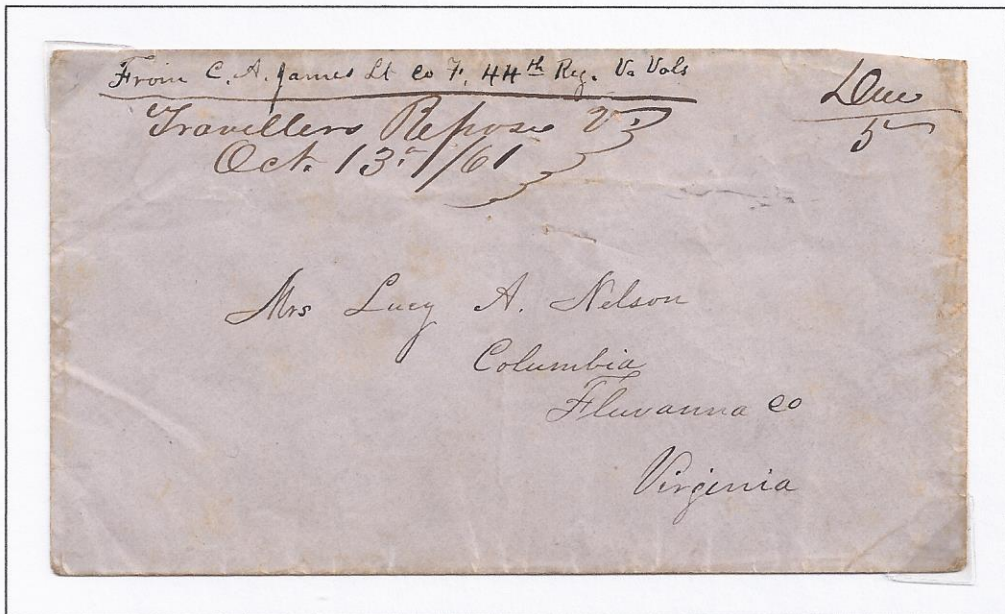 From C. A. James Lt Co F. 44th Reg. Va Vols
Travellers Repose Va
Oct. 13th/61
Due
5
Mrs Lucy A. Nelson
Columbia
Fluvanna Co
Virginia